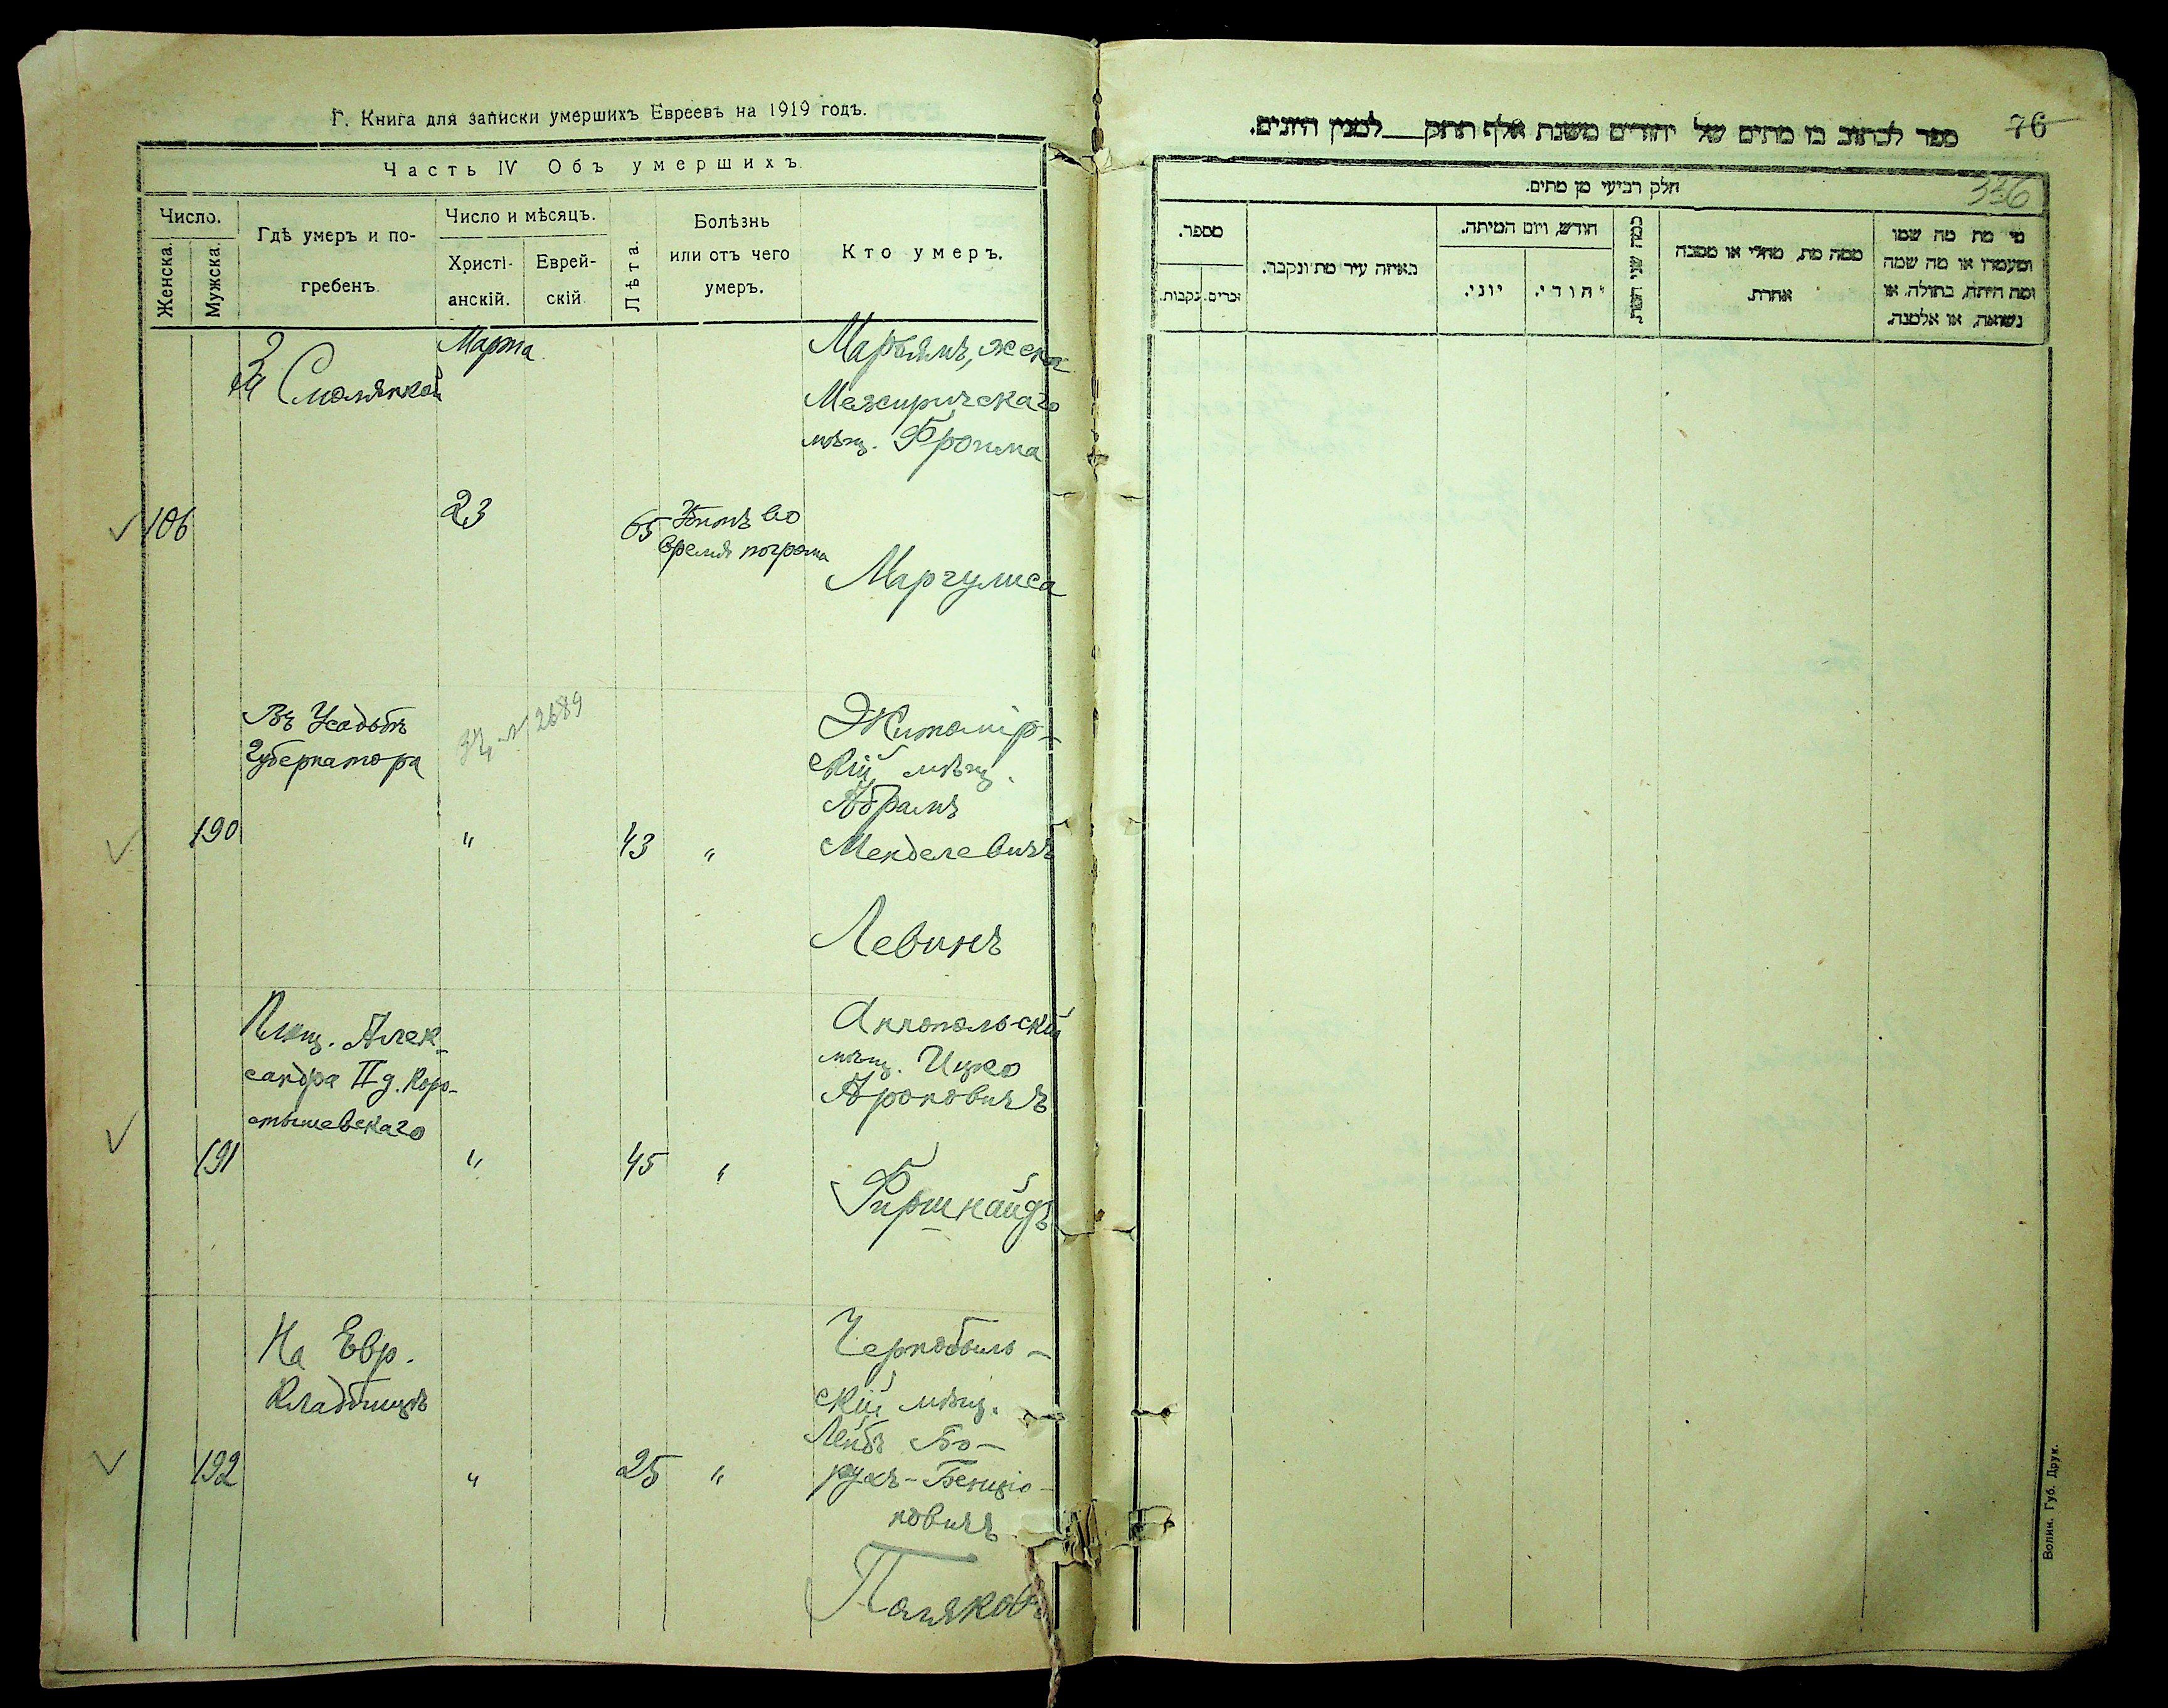 Г. Книга для записки умершихъ Евреевъ на 1919 годъ.
Часть IV Объ умершихъ.
Число.
Женска.
Мужска.
Гдѣ умеръ и по-
гребенъ
Число и мѣсяцъ.
Христі-
анскій.
Еврей-
скій.
Лѣта.
Болѣзнь
или отъ чего
умеръ.
Кто умеръ.
Марта
Марьямъ, жена
Межиричскаго
мѣщ. Фроима
106
23
65
Убитъ во
время погрома
Маргулиса
Въ Усадьбѣ
Губернатора
№ 2689
Житомір-
скій мѣщ.
Абрамъ
190
"
43
"
Менделевичъ
Левинъ
Площ. Алек-
сандра II д. Коро-
стышевскаго
Аннопольскій
мѣщ. Ицко
Ароновичъ
191
"
45
"
Фиршнайдъ
На Евр.
Кладбищѣ
Чернобыль-
скій мѣщ.
Лейбъ Бо-
192
"
25
"
рухъ-Бенціо-
новичъ
Поляковъ
ספר לכתוב בו מתים של יהודים משנת אלף תתק___למנין היונים.
76
336
חלק רביעי מן מתים.
מספר.
נקבות.
זכרים.
באיזה עיר מת ונקבר.
חודש, ויום המיתה.
יוני.
יהודי.
כמה שני חיותו
ממה מת, מחלי או מסבה
אחרת.
מי מת מה שמו
ומעמדו או מה שמה
ומה היתה, בתולה, או
נשואה, או אלמנה.
Волин. Губ. Друк.